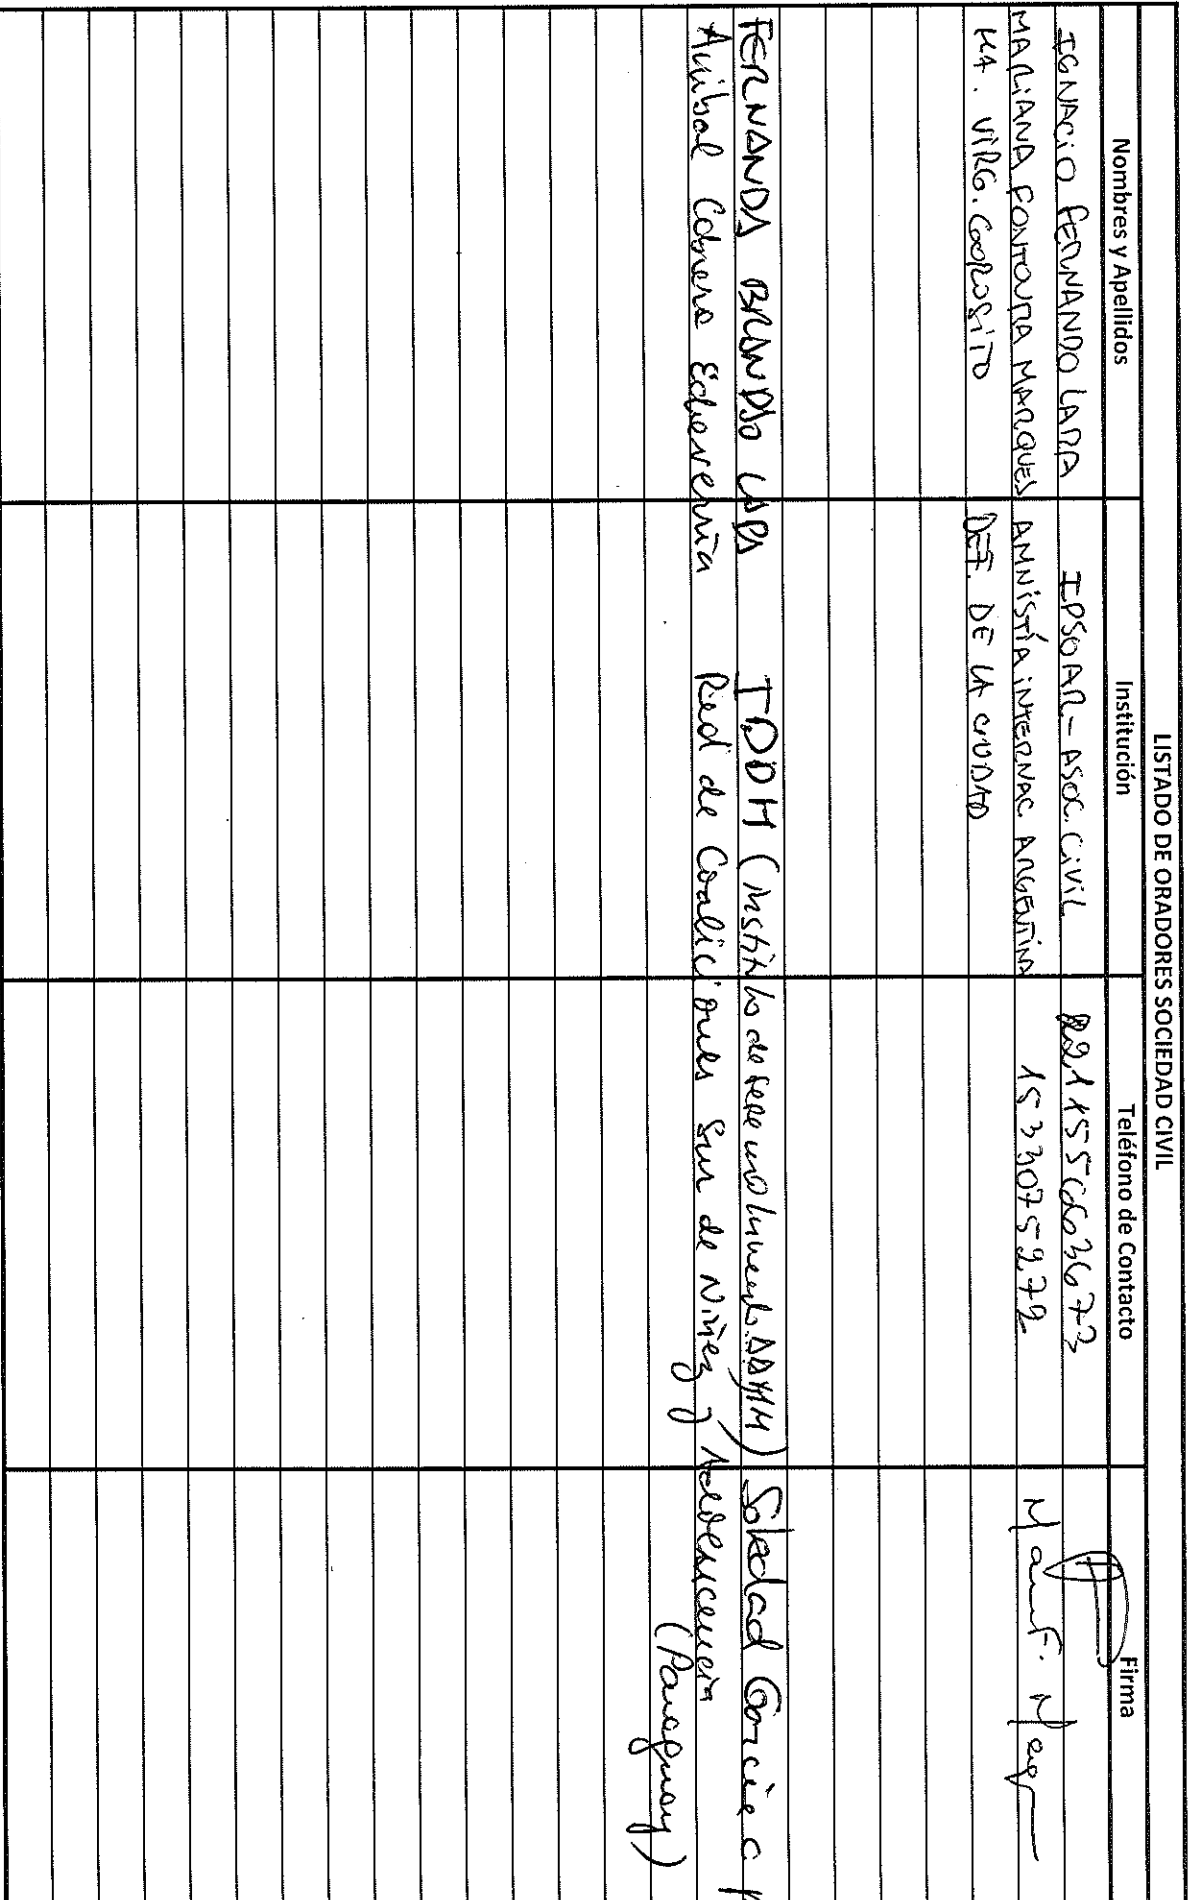 LISTADO DE ORADORES SOCIEDAD CIVIL
Nombres y Apellidos Institución Teléfono de Contacto Firma
IGNACIO FERNANDO LARA IPSOAR - ASOC. CIVIL
MARIANA FONTOURA MARQUES AMNISTÍA INTERNAC. ARGENTINA 1533075272
MA. VIRG. DEF. DE LA CIUDAD
FERNANDA BRANDÃO LAPA IDDH ( de Soledad García
Anibal Cabrera Echeverria Red de Coaliciones Sur de Niñez y Adolescencia
(Paraguay)